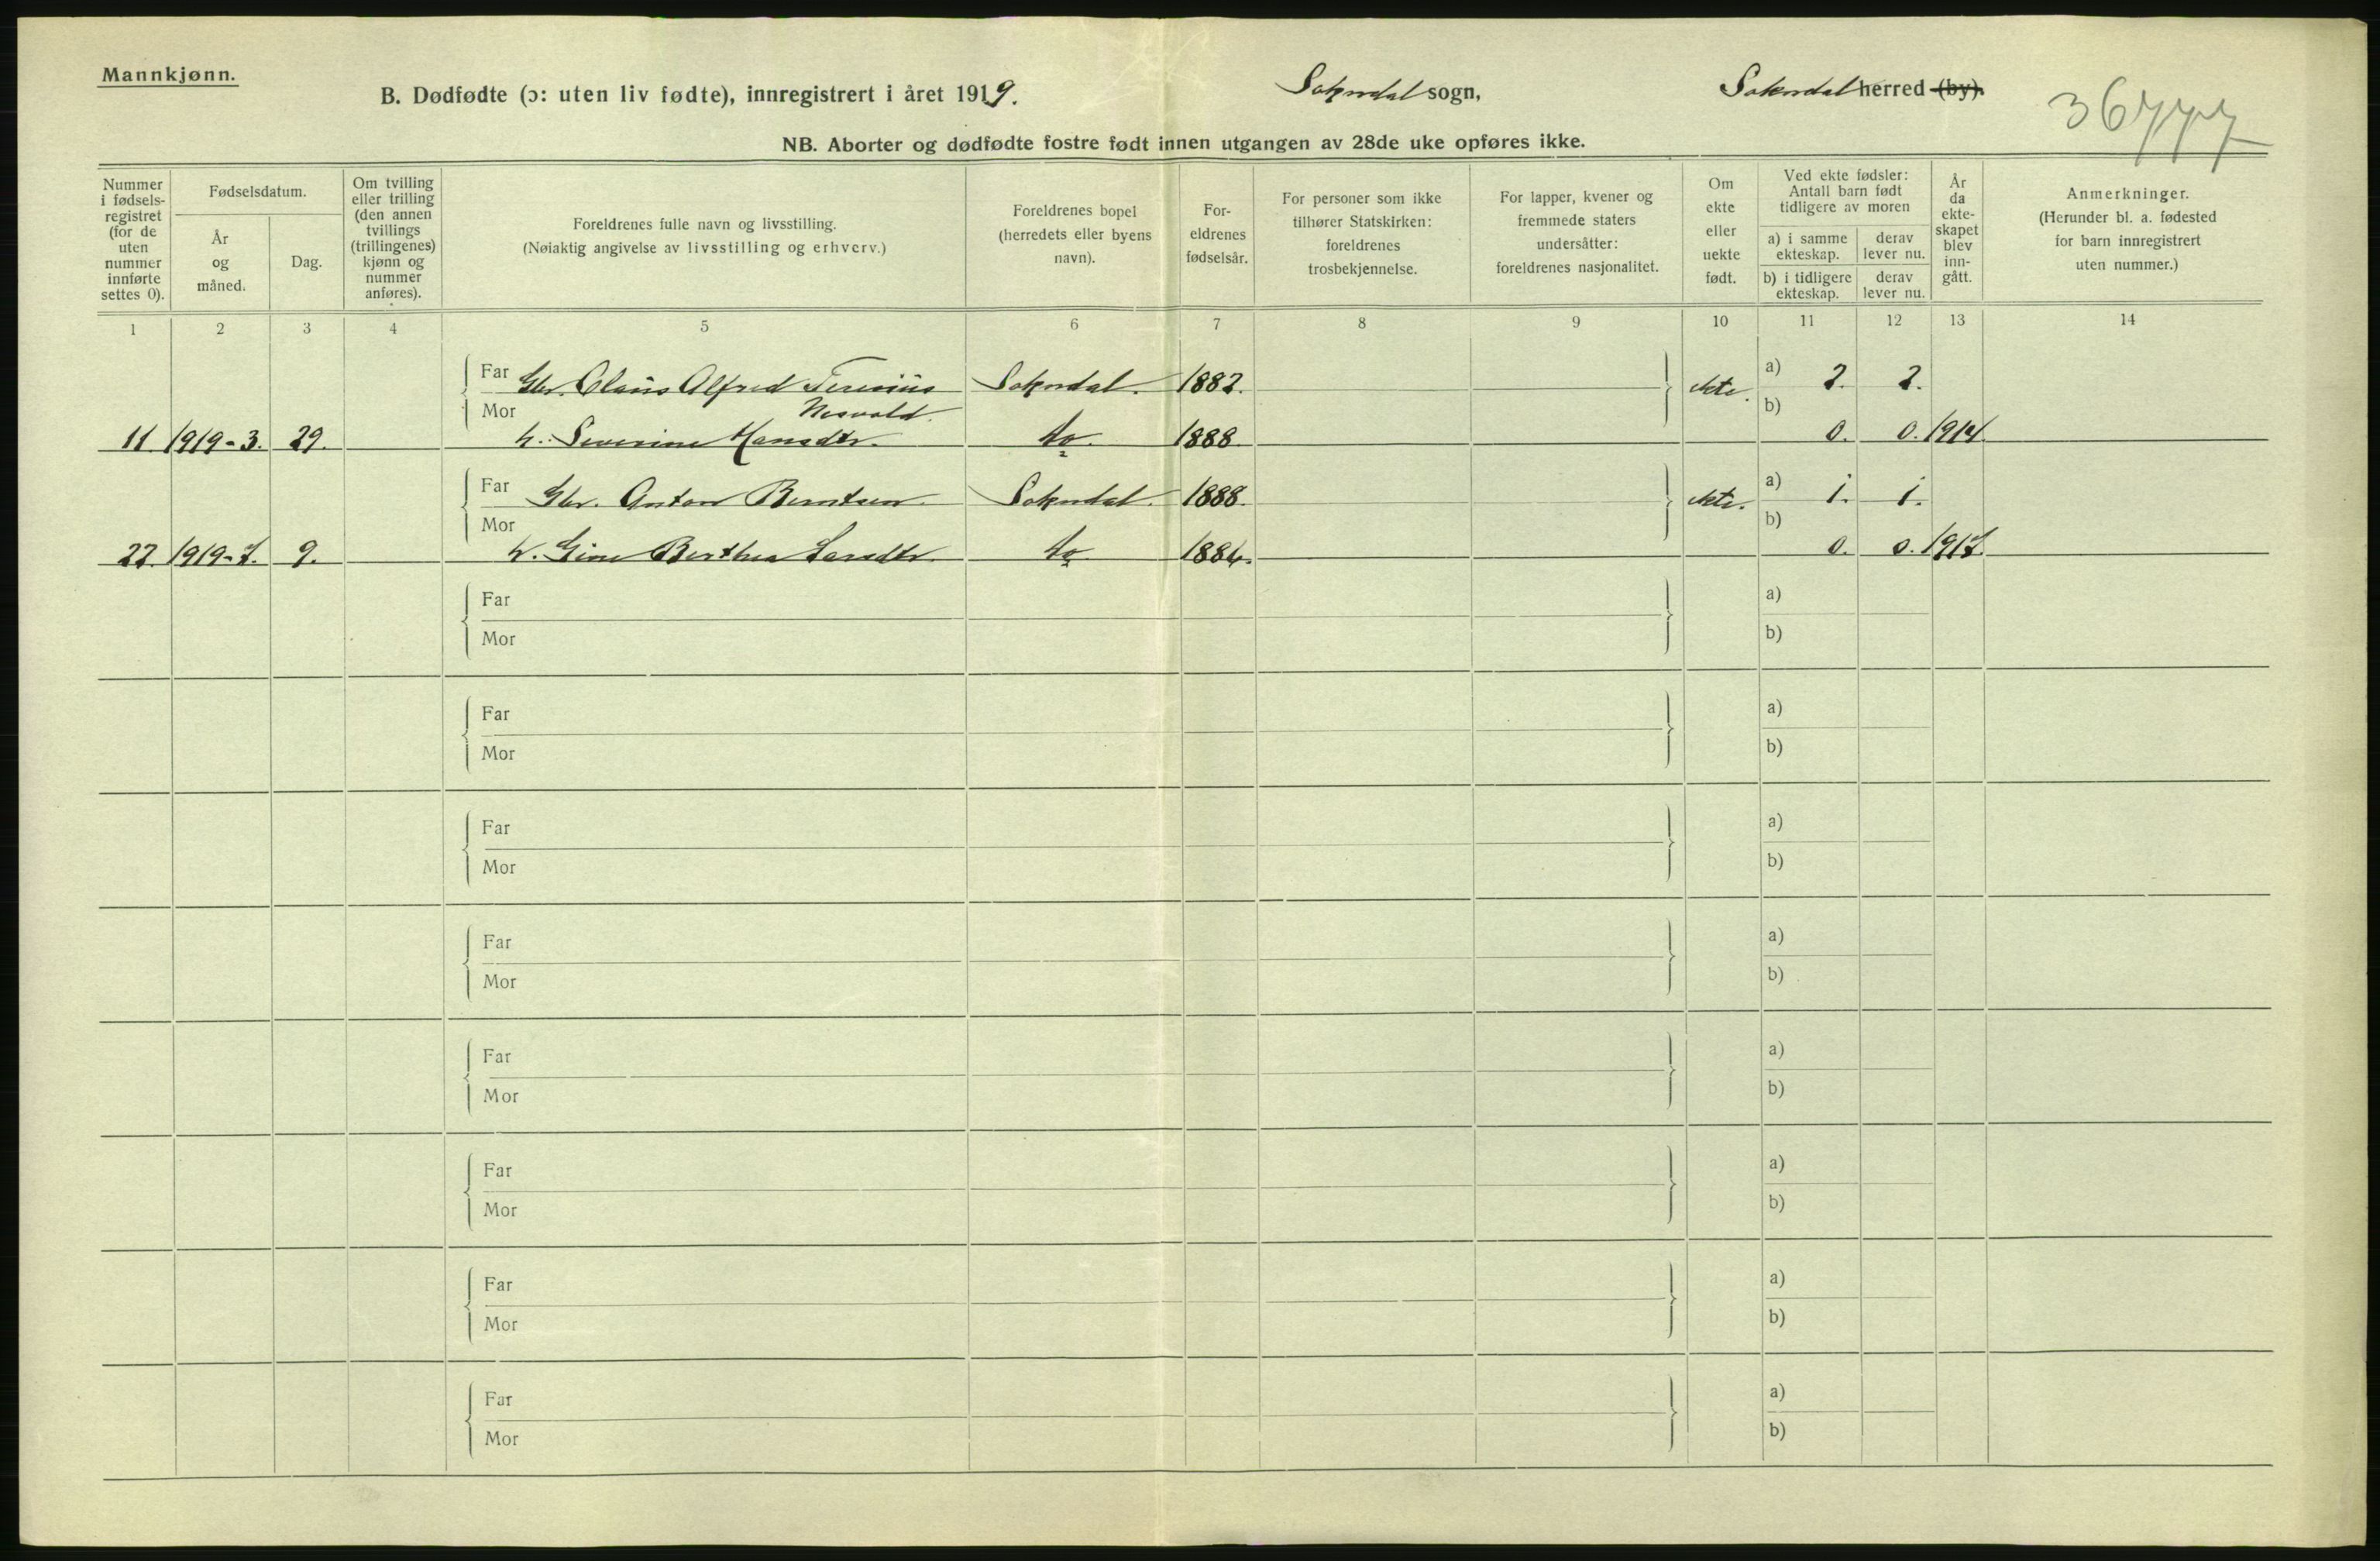 Mannkjønn.
B. Dødfødte (ɔ: uten liv fødte), innregistrert i året 1919.
Sokndal sogn,
Sokndal herred (by).
36777
NB. Aborter og dødfødte fostre født innen utgangen av 28de uke opføres ikke.
Nummer i fødsels-registret (for de uten nummer innførte settes 0).
Fødselsdatum.
År og måned.
Dag.
Om tvilling eller trilling (den annen tvillings (trillingenes) kjønn og nummer anføres).
Foreldrenes fulle navn og livsstilling.
(Nøiaktig angivelse av livsstilling og erhverv.)
Foreldrenes bopel (herredets eller byens navn).
For-eldrenes fødselsår.
For personer som ikke tilhører Statskirken: foreldrenes trosbekjennelse.
For lapper, kvener og fremmede staters undersåtter: foreldrenes nasjonalitet.
Om ekte eller uekte født.
Ved ekte fødsler: Antall barn født tidligere av moren
a) i samme ekteskap.
derav lever nu.
b) i tidligere ekteskap.
derav lever nu.
År da ekte-skapet blev inn-gått.
Anmerkninger.
(Herunder bl. a. fødested for barn innregistrert uten nummer.)
1 2 3 4 5 6 7 8 9 10 11 12 13 14
Far Gbr. Claus Alfred Teresius Sokndal. 1882. ekte. a) 2. 2.
Mor Nesvold. b)
11. 1919-3. 29. h. Severine Hansdtr. do. 1888. 0. 0. 1914.
Far Gbr. Anton Berntsen Sokndal. 1888. ekte. a) 1. 1.
Mor b)
22. 1919-7. 9. h. Gine Berthea Larsdtr. do. 1886. 0. 0. 1917.
Far a)
Mor b)
Far a)
Mor b)
Far a)
Mor b)
Far a)
Mor b)
Far a)
Mor b)
Far a)
Mor b)
Far a)
Mor b)
Far a)
Mor b)